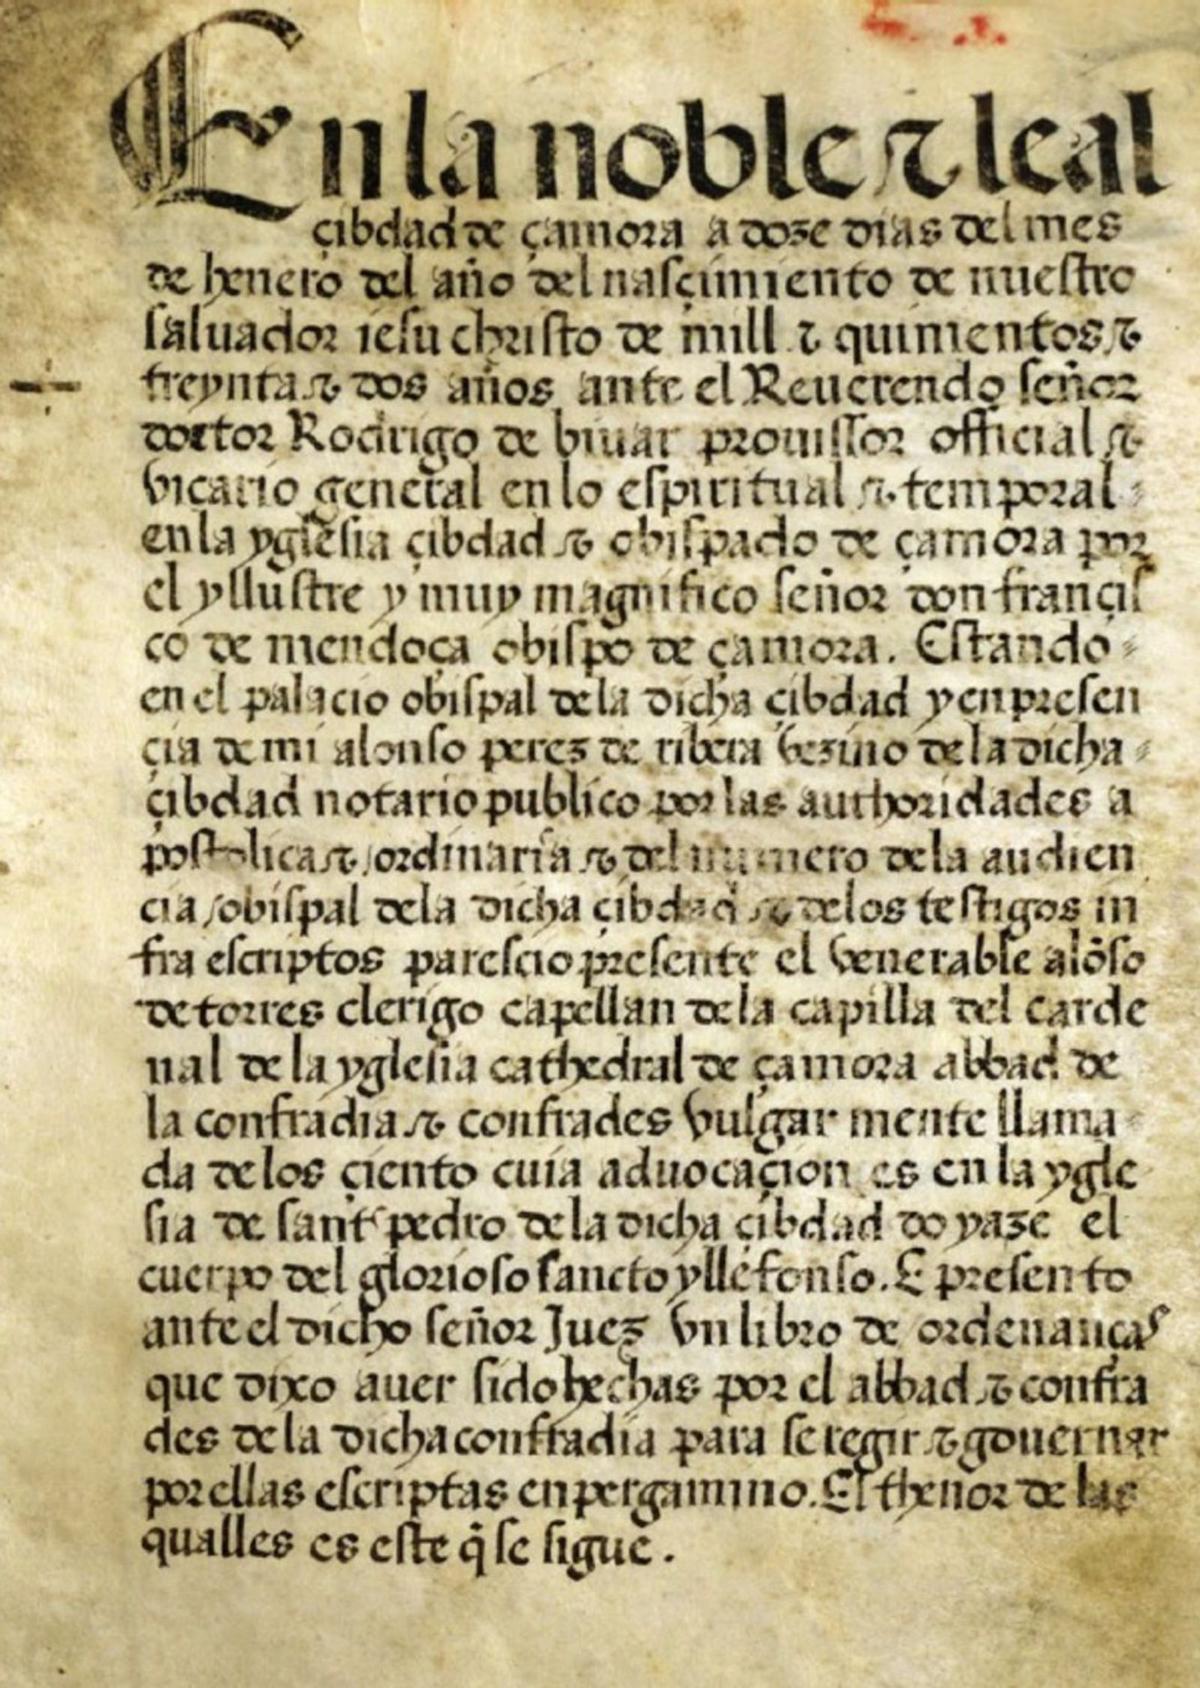 En la noble ⁊ leal
çibdad de çamora a doze dias del mes
de henero del año del nasçimiento de nuestro
saluador iesu christo de mill ⁊ quinientos ⁊
treynta ⁊ dos años ante el Reuerendo señor
doctor Rodrigo de biuar prouissor official ⁊
vicario general en lo espiritual ⁊ temporal
en la yglesia çibdad ⁊ obispado de çamora por
el yllustre y muy magnifico señor don françis
co de mendoça obispo de çamora. Estando
en el palacio obispal de la dicha çibdad y en presen
çia de mi alonso perez de ribera vezino de la dicha
çibdad notario publico por las authoridades a
postolica ⁊ ordinaria ⁊ del numero de la audien
cia obispal de la dicha çibdad ⁊ de los testigos in
fra escriptos parescio presente el venerable alõso
de torres clerigo capellan de la capilla del carde
nal de la yglesia cathedral de çamora abbad de
la confradia ⁊ confrades vulgar mente llama
da de los çiento cuia aduocaçion es en la ygle
sia de sant pedro de la dicha çibdad do yaze el
cuerpo del glorioso sancto yllefonso. E presento
ante el dicho señor Juez vn libro de ordenanças
que dixo auer sido hechas por el abbad ⁊ confra
des de la dicha confradia para se regir ⁊ gouernar
por ellas escriptas en pergamino. El thenor de las
qualles es este q̃ se sigue.